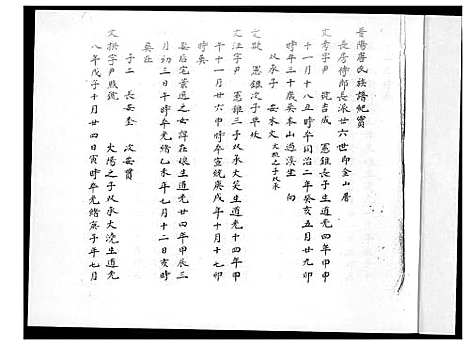 晉陽唐氏族譜紀實
長房傳郎長派廿六世印金山厝
文季字尹 號吉成 憲錐長子生道光四年甲申
十一月十八丑時卒同治二年癸亥五月廿九卯
時年三十歲葬本山過溪坐 向
以承子 安本文 大欉之子以承
文耿 憲錐次子早歿
文江字尹 憲錐三子以承大笑生道光十四年甲
午十一月廿六申時卒宣統庚戌年十月十七卯
時葬
娶后宅葉通之女諱在娘生道光廿四年甲辰三
月初三日午時卒光緒乙未年七月十二日亥時
葬在
子二 長安奎 次安贊
文拱字尹殿號 大陽之子以承大澆生道光
八年戊子十月廿四日寅時卒光緒庚子年七月